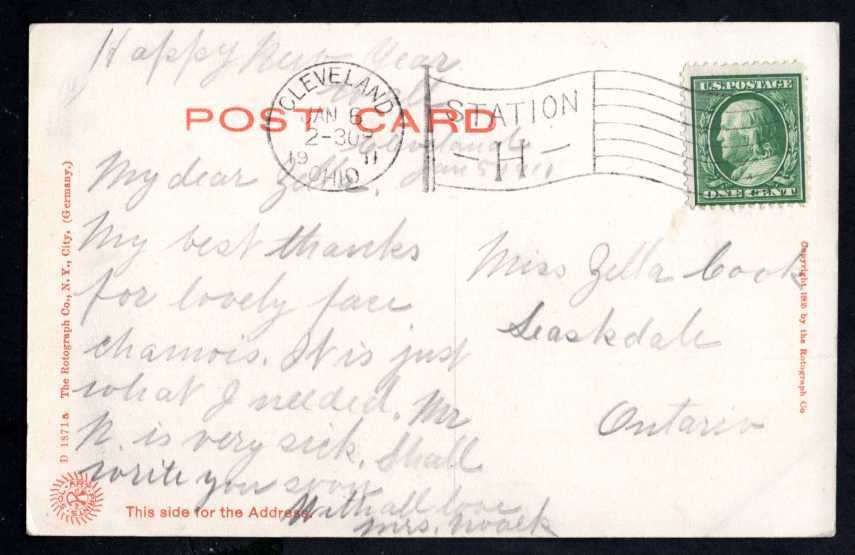 Happy New Year
to all
POST CARD
CLEVELAND
JAN 6
2-30P
1911
OHIO
STATION
- H -
U.S. POSTAGE
ONE CENT
Cleveland O
Jan 5 1911
My dear Zella,
My best thanks
for lovely face
chamois. It is just
what I needed. Mr
N. is very sick. Shall
write you soon
With all love
Mrs. Noack
Miss Zella Cook
Leaskdale
Ontario
D 1871a The Rotograph Co., N. Y., City, (Germany.)
Copyright, 1905 by the Rotograph Co
This side for the Address.